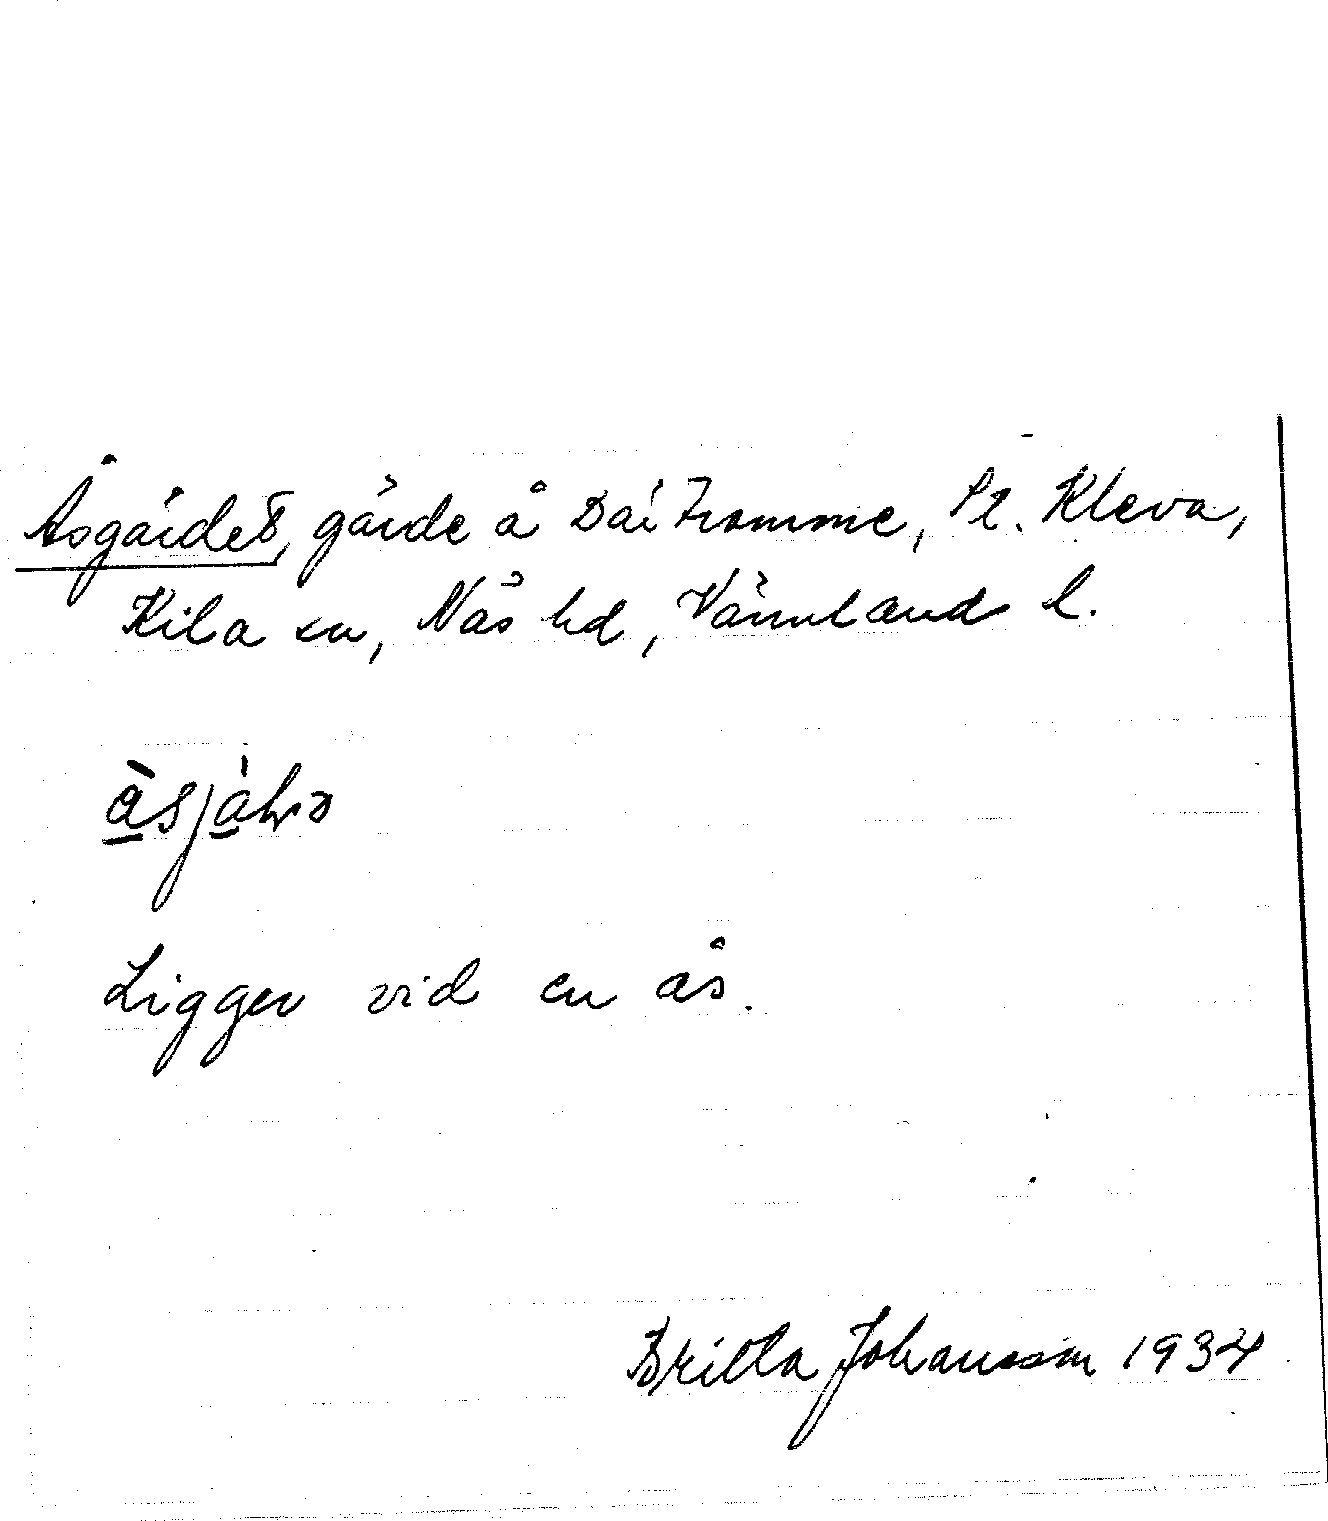 Åsgärdet, gärde å Där Framme, St. Kleva,
Kila sn, Näs hd, Värmlands l.
Ligger vid en ås.
Britta Johansson 1934